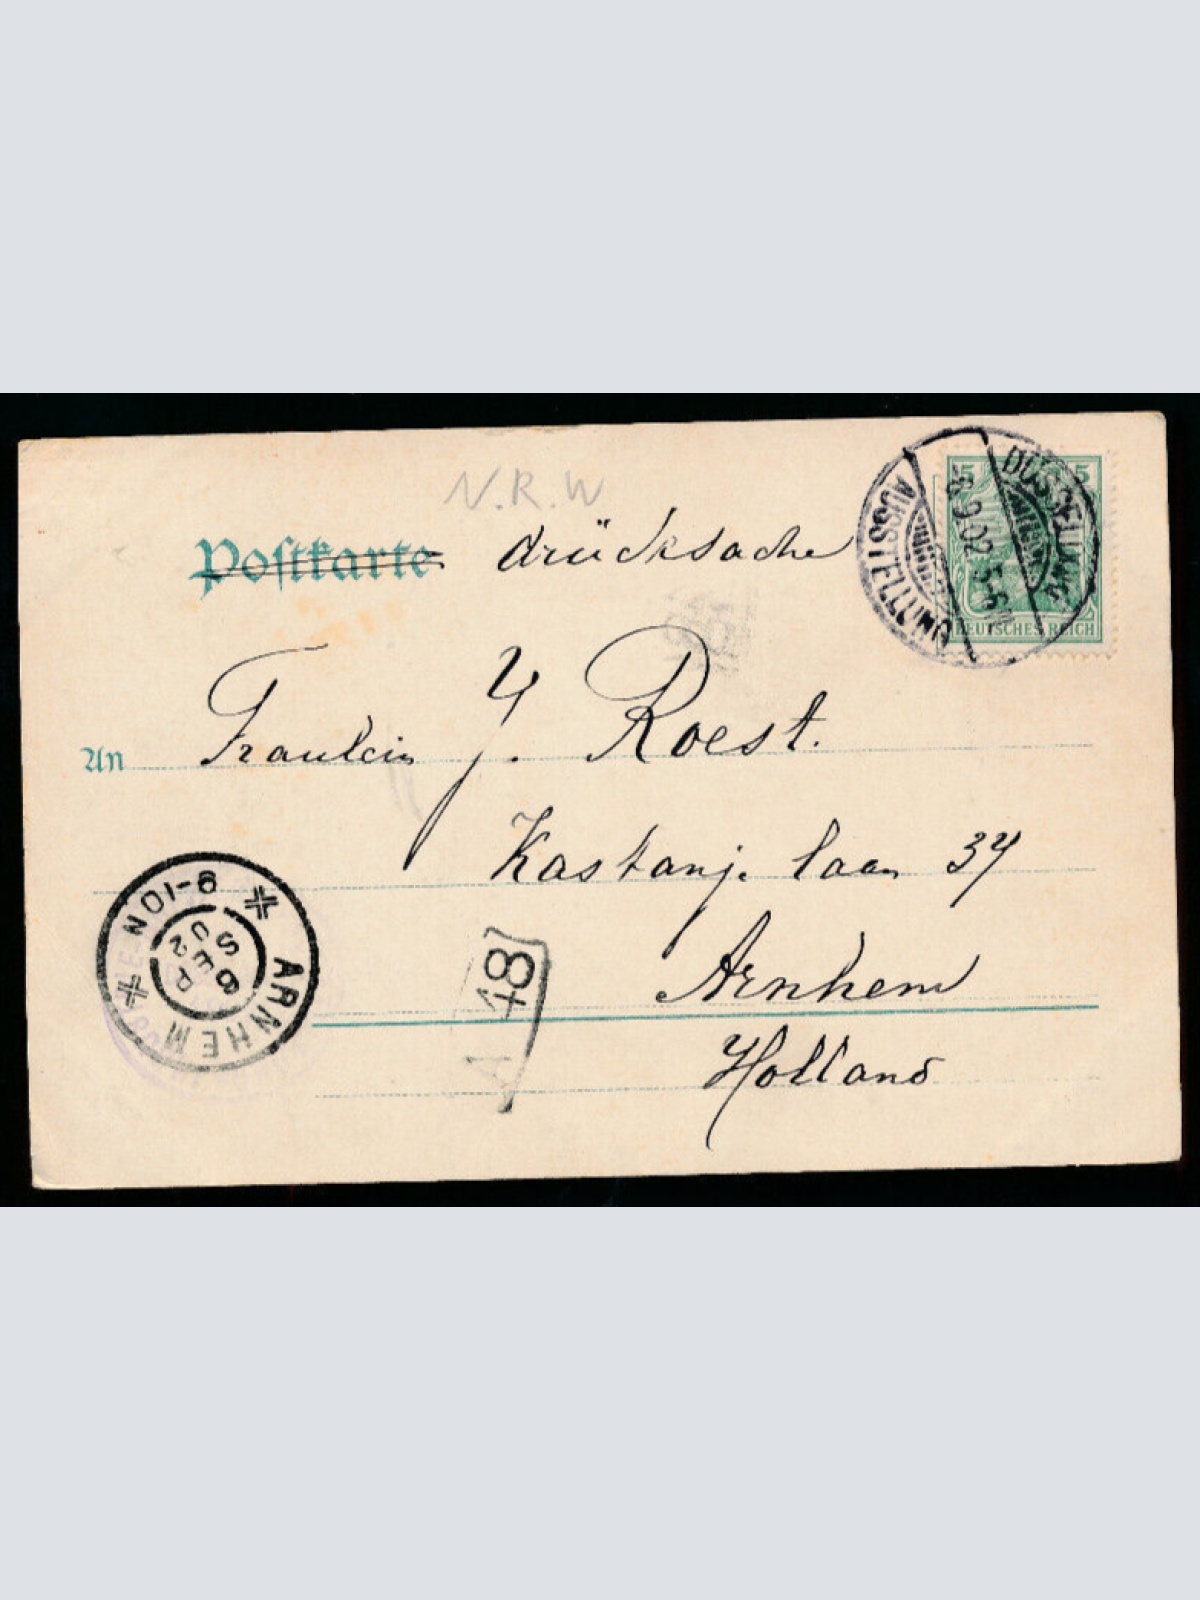 N.R.W
Postkarte drücksache
5 5
DEUTSCHES REICH
DÜSSELDORF
9.02. 5-6N
AUSSTELLUNG
An Fraulein J. Roest.
Kastanje laan 37
Arnhem
Holland
ARNHEM
9-10N
6
SEP
02
A 48